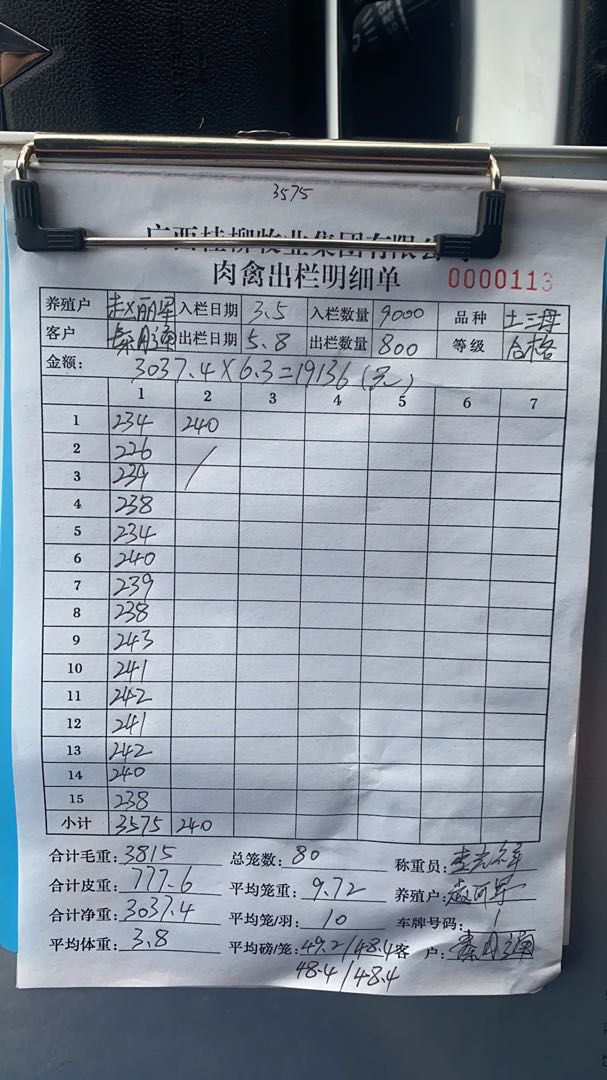 3575
广西桂柳牧业集团有限公司
肉禽出栏明细单 0000113
养殖户 赵丽军 入栏日期 3.5 入栏数量 9000 品种 土三海
客户 秦彤通 出栏日期 5.8 出栏数量 800 等级 合格
金额: 3037.4×6.3=19136(元)
1 2 3 4 5 6 7
1 234 240
2 226
3 239
4 238
5 234
6 240
7 239
8 238
9 243
10 241
11 242
12 241
13 242
14 240
15 238
小计 3575 240
合计毛重: 3815 总笼数: 80 称重员:
合计皮重: 777.6 平均笼重: 9.72 养殖户: 赵丽军
合计净重: 3037.4 平均笼/羽: 10 车牌号码: /
平均体重: 3.8 平均磅/笼: 49.2/48.4 客 户: 秦彤通
48.4/48.4